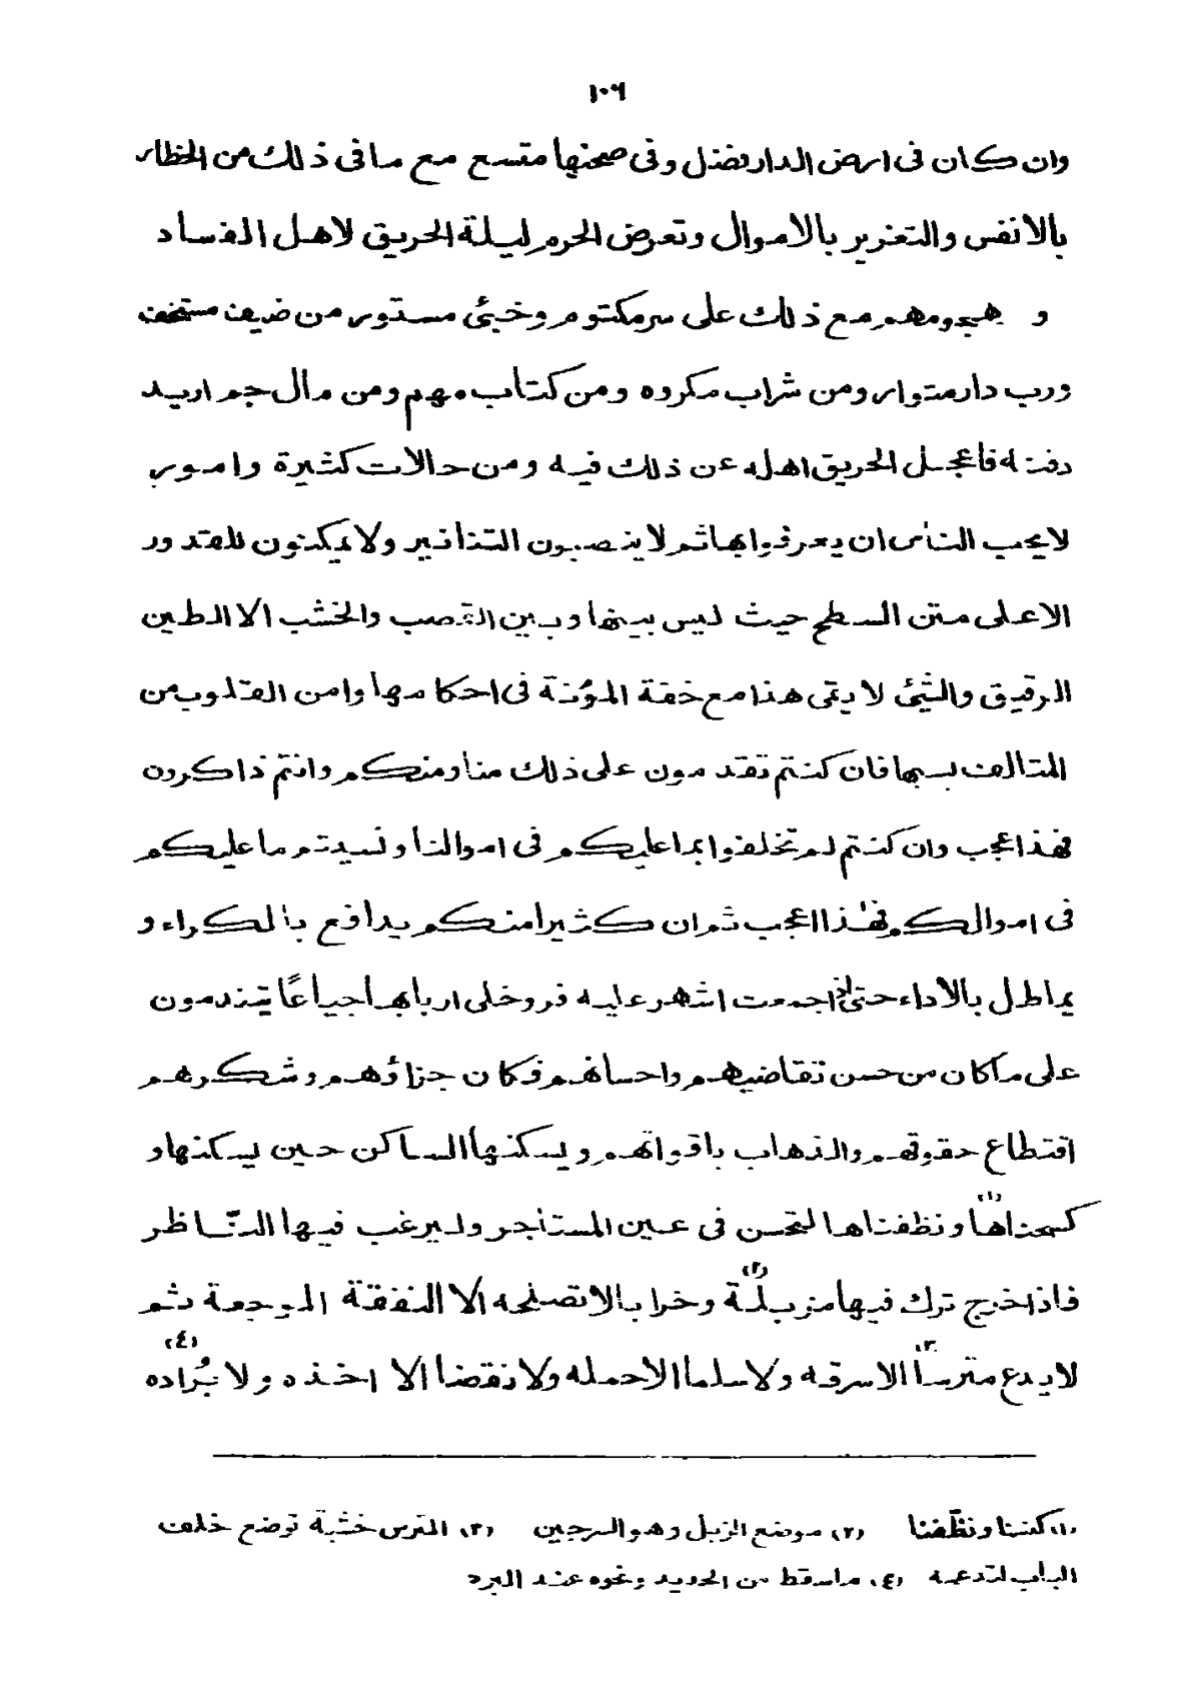 ١٠٦
وان كان فى ارض الدار فضل وفى صحنها متسع مع ما فى ذلك من الخطار
بالانفس والتغرير بالاموال وتعرض الحرم ليلة الحريق لاهل الفساد
و هجومهم مع ذلك على سر مكتوم وخبئ مستور من ضيف مستخف
ورب دار متوار ومن شراب مكروه ومن كتاب مهم ومن مال جم اريد
دفنه فاعجل الحريق اهله عن ذلك فيه ومن حالات كثيرة وامور
لا يحب الناس ان يعرفوا بها ثم لا ينصبون التنانير ولا يمكنون للقدور
الا على متن السطح حيث ليس بينها وبين القصب والخشب الا الطين
الرقيق والشئ لا يقى هذا مع خفة المؤنة فى احكامها وامن القلوب من
المتالف بسببها فان كنتم تقدمون على ذلك منا ومنكم وانتم ذاكرون
فهذا عجب وان كنتم لم تحلفوا بما عليكم فى اموالنا ونسيتم ما عليكم
فى اموالكم فهٰذا اعجب ثم ان كثيرا منكم يدافع بالكراء و
يماطل بالاداء حتى اذا جمعت اشهر عليه فر وخلى اربابها جياعًا يتندمون
على ما كان من حسن تقاضيهم واحسانهم فكان جزاؤهم وشكرهم
اقتطاع حقوقهم والذهاب باقواتهم ويسكنها الساكن حين يسكنها و
كسحناها (١) ونظفناها لتحسن فى عين المستأجر وليرغب فيها النّاظر
فاذا خرج ترك فيها مزبلة (٢) وخرابا لا تصلحه الا النفقة الموجعة ثم
لا يدع مترسا (٣) الا سرقه ولا سلما الا حمله ولا نقضا الا اخذه ولا بُرادة (٤)
(١) كنسنا ونظّفنا (٢) موضع الزبل وهو السرجين (٣) المترس خشبة توضع خلف
الباب لتدعمه (٤) ما سقط من الحديد ونحوه عند البرد